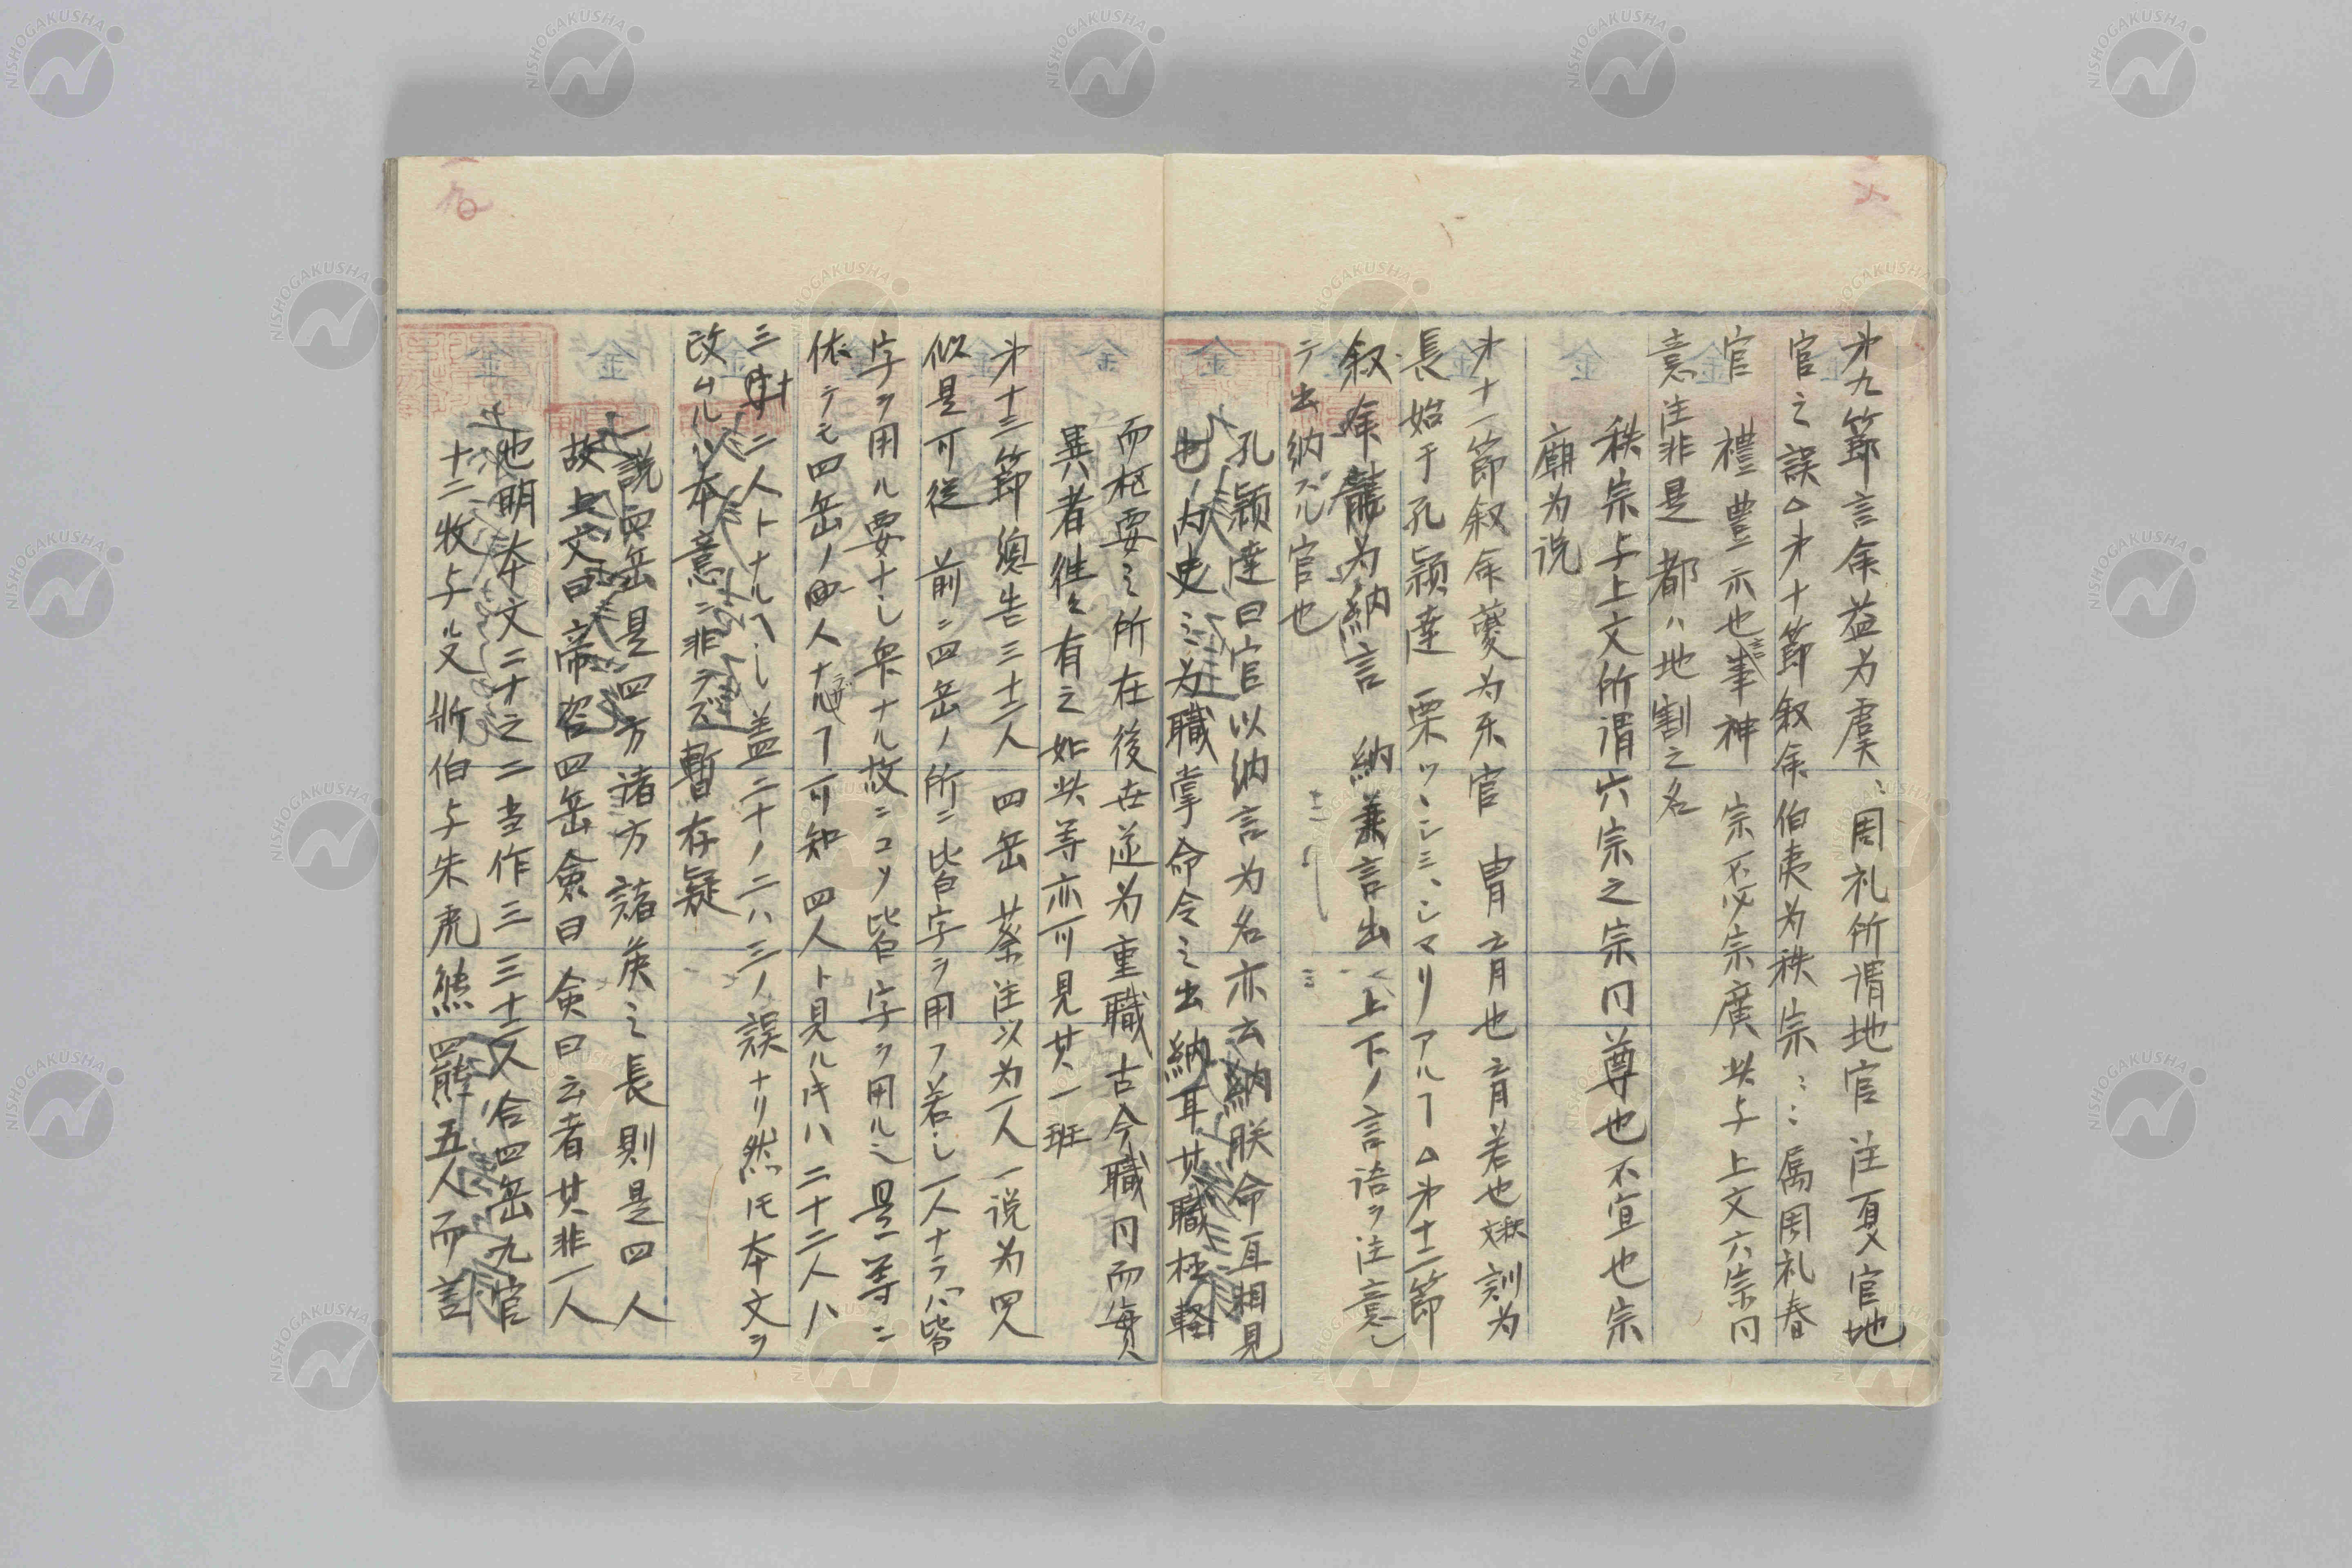 才九節言余益为虞〻周礼所谓地官注夏官地
官之誤△才十節叙余伯夷为秩宗〻〻属周礼春
官 禮豊示也言事神 宗不必宗廣此与上文六宗冂
意注非是 都ハ地割之名
秩宗与上文所谓六宗之宗冂尊也不宜也宗
廟为说
才十一節叙余夔为乐官 冑育也育若也 训为
長始于孔颖達 栗ツヽシミ、シマリアルㄱ△才十二節
叙余龍为納言 納兼言出 上下ノ言语ヲ注意シ
テ出納スル官也
孔颖達曰官以納言为名亦云納朕命耳相見
也内史〻为職掌命令之出納耳其職極軽
而枢要之所在後世遂为重職古今職冂而實
異者往々有之如此等亦可見其一班
才十三節總告二十二人 四岳 蔡注以为一人一说为四人
似是可従 前ニ四岳ノ所ニ皆字ヲ用フ若シ一人ナラバ皆
字ヲ用ル要ナシ衆ナル故ニコソ皆字ヲ用ルニ是等ニ
依テモ四岳ノ四人ナルㄱ可知 四人ト見ル时ハ二十二人ハ
三十二人トナルヘシ 盖二十ノ二ハ三ノ誤ナリ然モ本文ヲ
改ムルハ本意ニ非ラズ暫存疑
一説四岳是四方诸方諸侯之長則是四人
故上文曰帝咨四岳僉曰僉曰云者其非一人
也明本文二十之二当作三三十二人合四岳九官
十二牧与殳斨伯与朱虎熊羆五人而言